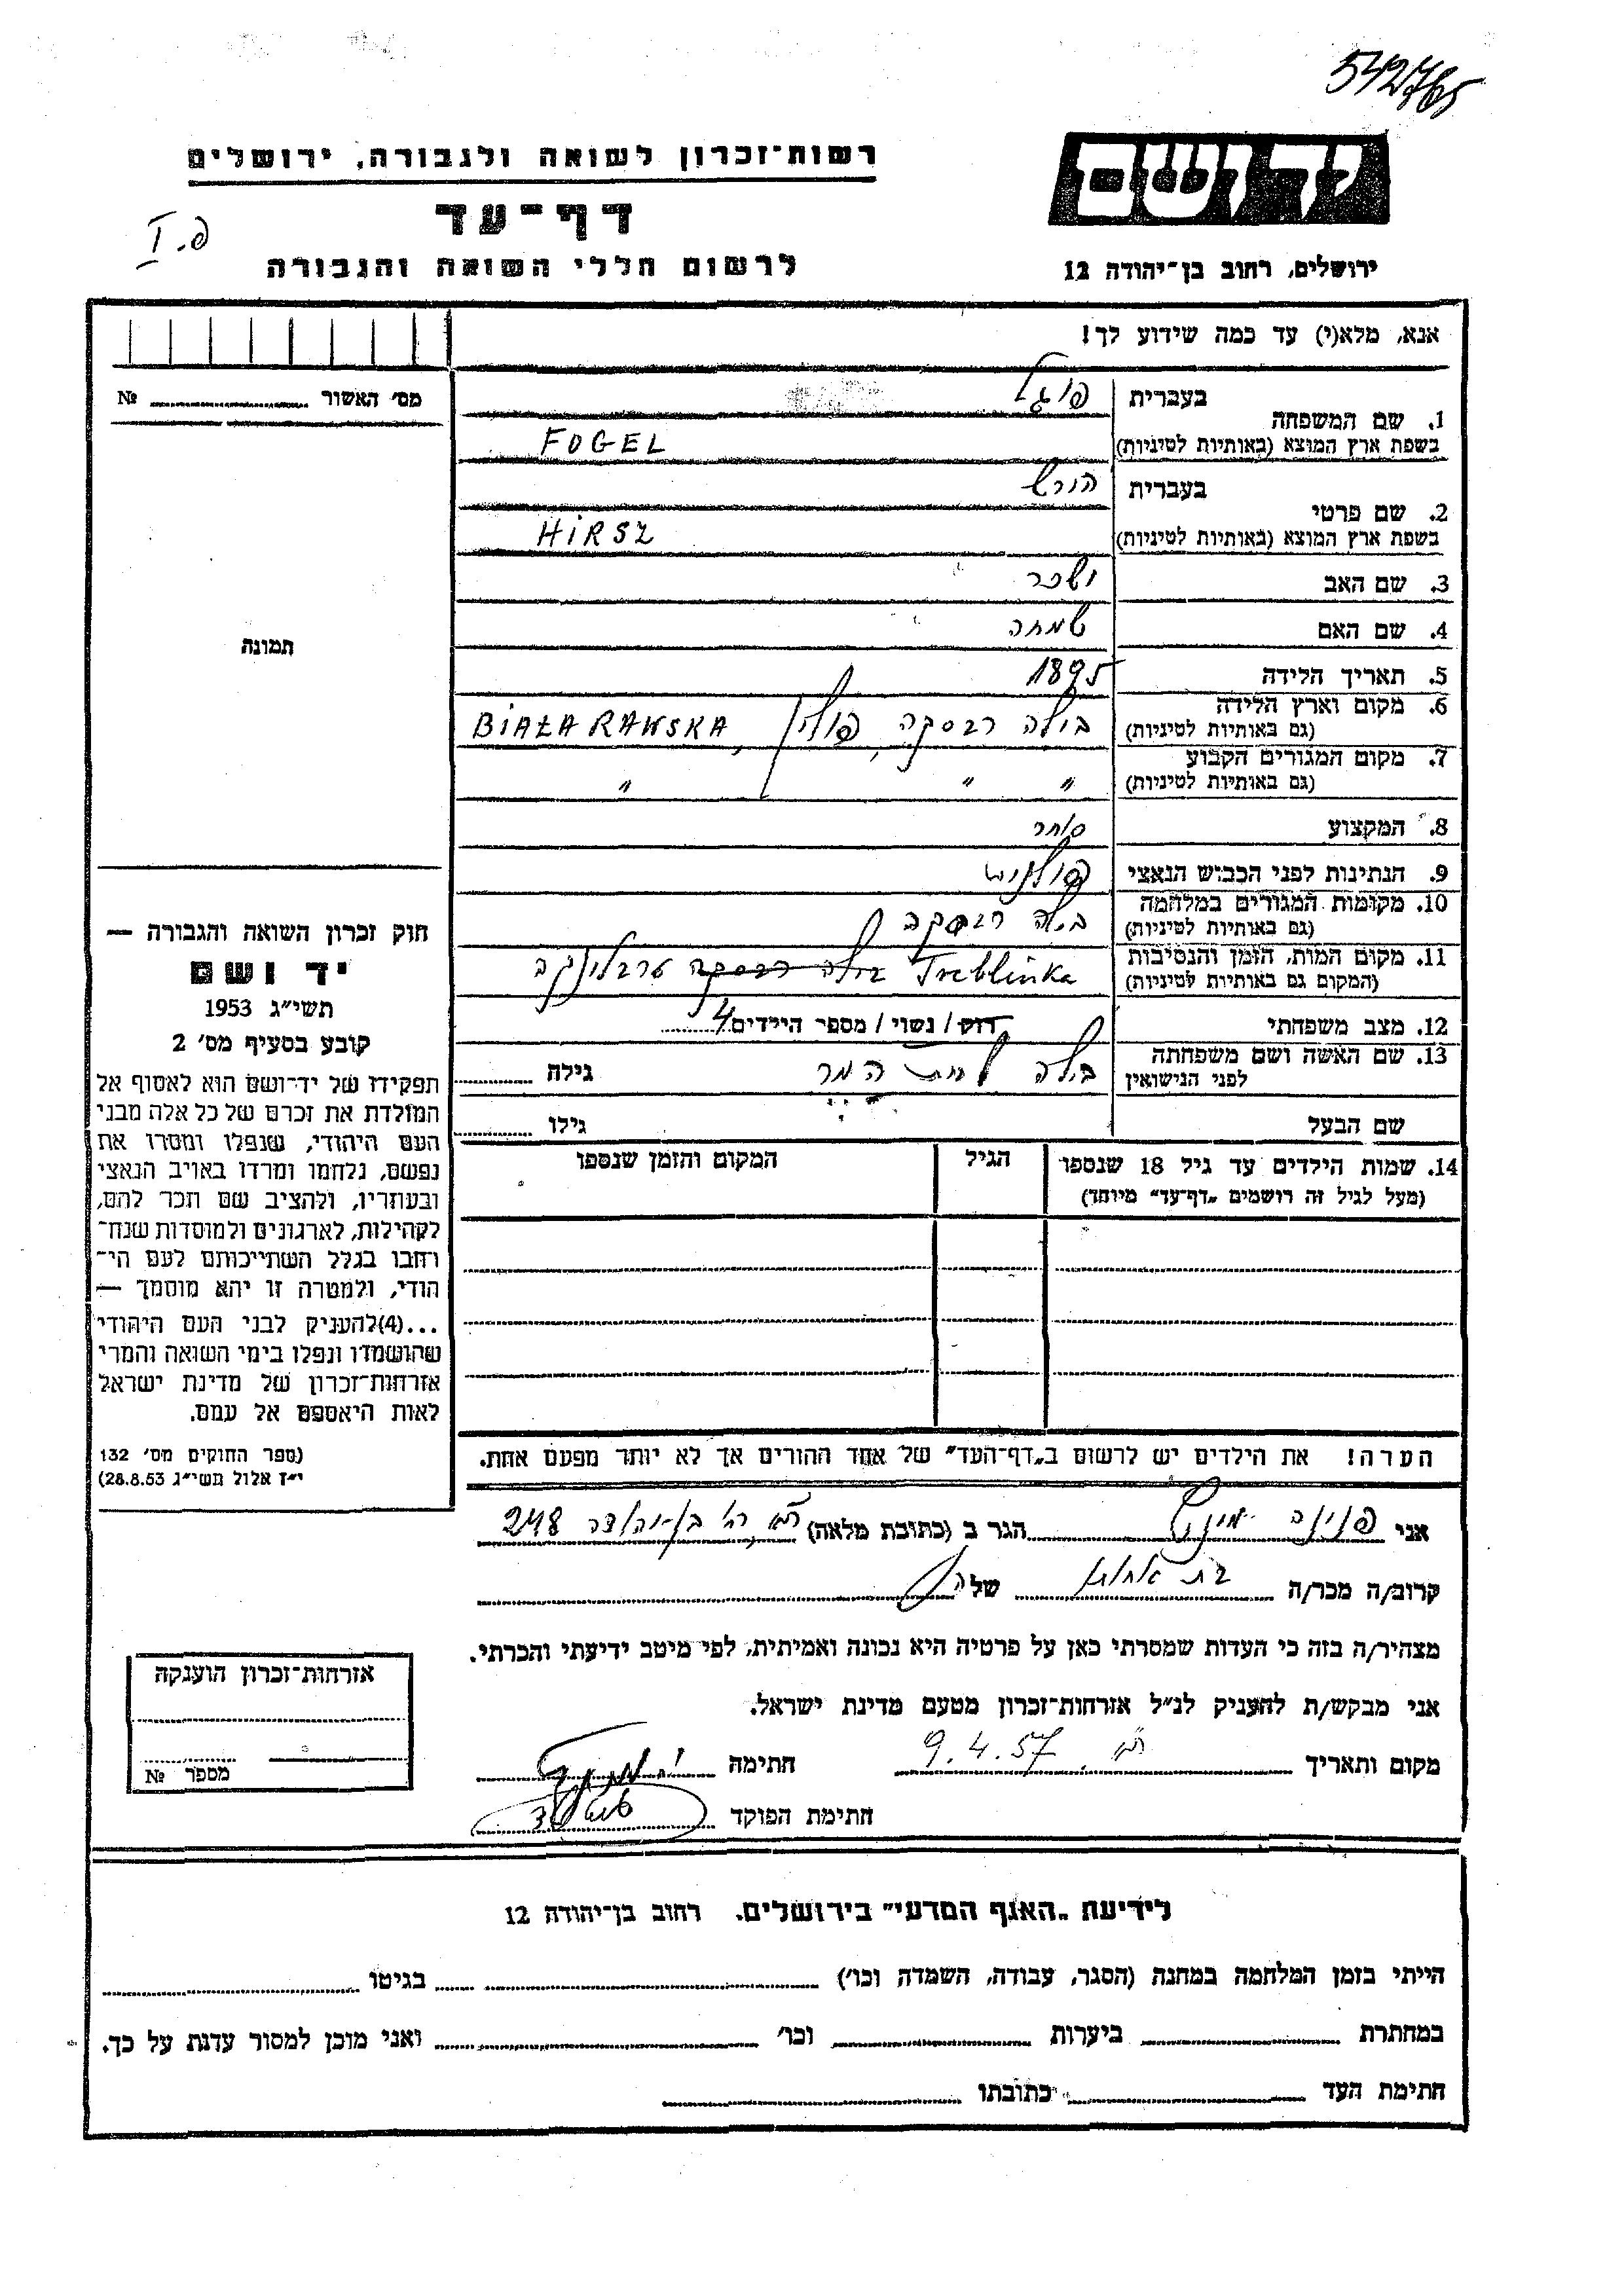 542765
רשות־זכרון לשואה ולגבורה, ירושלים
יד ושם
דף־עד
פ. I
לרשום חללי השואה והגבורה
ירושלים, רחוב בן־יהודה 12
אנא, מלא(י) עד כמה שידוע לך!
מס' האשור № ............
תמונה
בעברית פוגל
1. שם המשפחה
בשפת ארץ המוצא (באותיות לטיניות) FOGEL
בעברית הירש
2. שם פרטי
בשפת ארץ המוצא (באותיות לטיניות) HiRSZ
3. שם האב ישכר
4. שם האם שמחה
5. תאריך הלידה 1895
6. מקום וארץ הלידה
(גם באותיות לטיניות) בילה רבסקה, פולין BiAŁA RAWSKA,
7. מקום המגורים הקבוע
(גם באותיות לטיניות) " " "
8. המקצוע סוחר
9. הנתינות לפני הכבוש הנאצי פולנית
10. מקומות המגורים במלחמה
(גם באותיות לטיניות) בילה רבסקה
11. מקום המות, הזמן והנסיבות
(המקום גם באותיות לטיניות) Treblinka בילה רבסקה טרבלינקה
12. מצב משפחתי רוק / נשוי / מספר הילדים 4
13. שם האשה ושם משפחתה
לפני הנישואין בילה לבית המר גילה ............
שם הבעל גילו ............
14. שמות הילדים עד גיל 18 שנספו הגיל המקום והזמן שנספו
(מעל לגיל זה רושמים „דף־עד" מיוחד)
הערה! את הילדים יש לרשום ב„דף־העד" של אחד ההורים אך לא יותר מפעם אחת.
חוק זכרון השואה והגבורה —
יד ושם
תשי"ג 1953
קובע בסעיף מס' 2
תפקידו של יד־ושם הוא לאסוף אל
המולדת את זכרם של כל אלה מבני
העם היהודי, שנפלו ומסרו את
נפשם, נלחמו ומרדו באויב הנאצי
ובעוזריו, ולהציב שם וזכר להם,
לקהילות, לארגונים ולמוסדות שנח־
רבו בגלל השתייכותם לעם הי־
הודי, ולמטרה זו יהא מוסמך —
...(4)להעניק לבני העם היהודי
שהושמדו ונפלו בימי השואה והמרי
אזרחות־זכרון של מדינת ישראל
לאות היאספם אל עמם.
(ספר החוקים מס' 132
י"ז אלול תשי"ג 28.8.53)
אני פנינה הגר ב (כתובת מלאה) ת"א, רח' בן־יהודה 248
קרוב/ה מכר/ה בת אחותו של
מצהיר/ה בזה כי העדות שמסרתי כאן על פרטיה היא נכונה ואמיתית, לפי מיטב ידיעתי והכרתי.
אני מבקש/ת להעניק לנ"ל אזרחות־זכרון מטעם מדינת ישראל.
מקום ותאריך ת"א, 9.4.57 חתימה
חתימת הפוקד
אזרחות־זכרון הוענקה
מספר №
לידיעת „האגף המדעי" בירושלים. רחוב בן־יהודה 12
הייתי בזמן המלחמה במחנה (הסגר, עבודה, השמדה וכו') ............ בגיטו ............
במחתרת ............ ביערות ............ וכו' ............ ואני מוכן למסור עדות על כך.
חתימת העד ............ כתובתו ............